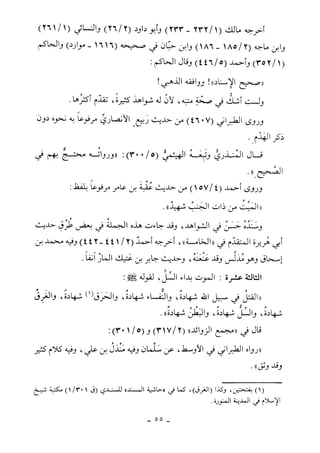 أخرجه مالك (٢٣٢/١ - ٢٣٣) وأبو داود (٢٦/٢) والنسائي (٢٦١/١)
وابن ماجه (١٨٥/٢ - ١٨٦) وابن حبّان في صحيحه (١٦١٦ - موارد) والحاكم
(٣٥٢/١) وأحمد (٤٤٦/٥) وقال الحاكم:
«صحيح الإسناد»! ووافقه الذهبي!
ولست أشكُّ في صحّةِ متنِه، لأنَّ له شواهدَ كثيرةً، تقدّم أكثرُها.
وروى الطبراني (٤٦٠٧) من حديث رَبيعٍ الأنصاريِّ مرفوعاً به نحوه دون
ذكر الهَدْم.
قال المُنذريُّ وتَبعَهُ الهيثميُّ (٣٠٠/٥): «ورواتُه محتجٌّ بهم في
الصَّحيح».
وروى أحمد (١٥٧/٤) من حديث عُقْبَةَ بن عامر مرفوعاً بلفظ:
«المَيِّتُ من ذات الجَنْبِ شهيدٌ».
وسَنَدُهُ حَسَنٌ في الشواهد، وقد جاءت هذه الجملةُ في بعض طُرُقِ حديث
أبي هُريرة المتقدّم في «الخامسة»، أخرجه أحمدُ (٤٤١/٢ - ٤٤٢) وفيه محمد بن
إسحاق وهو مُدَلِّس وقد عَنْعَنَهُ، وحديث جابر بن عَتيك المارّ آنفاً.
الثالثة عشرة : الموت بداء السُّلِّ، لقوله ﷺ:
«القتلُ في سبيل الله شهادةٌ، والنُّفساء شهادةٌ، والحَرَق(١) شهادةٌ، والغَرِقُ
شهادةٌ، والسُّلُّ شهادةٌ، والبَطْنُ شهادةٌ».
قال في «مجمع الزوائد» (٣١٧/٢) و (٣٠١/٥):
«رواه الطبراني في الأوسط، عن سَلْمان وفيه مَنْدَلُ بن علي، وفيه كلام كثير
وقد وثق».
(١) بفتحتين، وكذا (الغرق)، كما في «حاشية المسند» للسندي (ق ٣٠١/١) مكتبة شيخ
الإسلام في المدينة المنورة.
- ٥٥ -